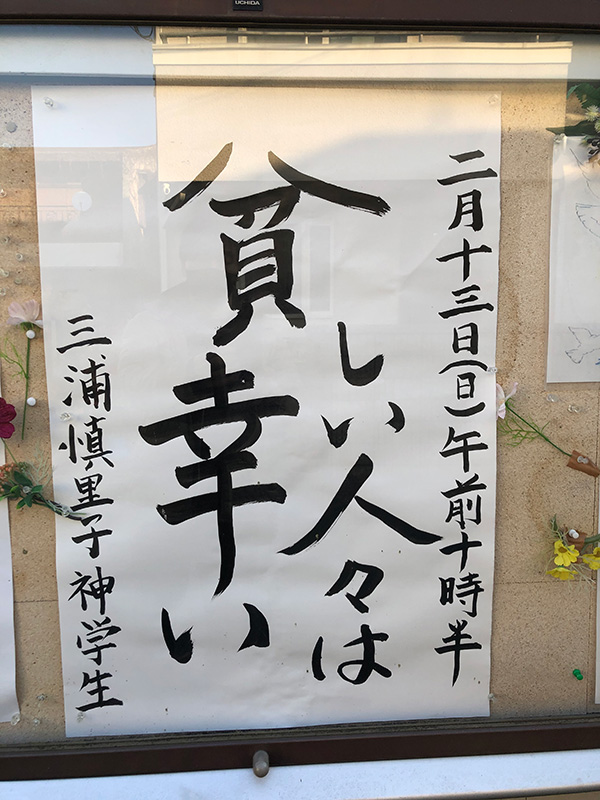 UCHIDA
二月十三日(日)午前十時半
貧しい人々は
幸い
三浦慎里子神学生